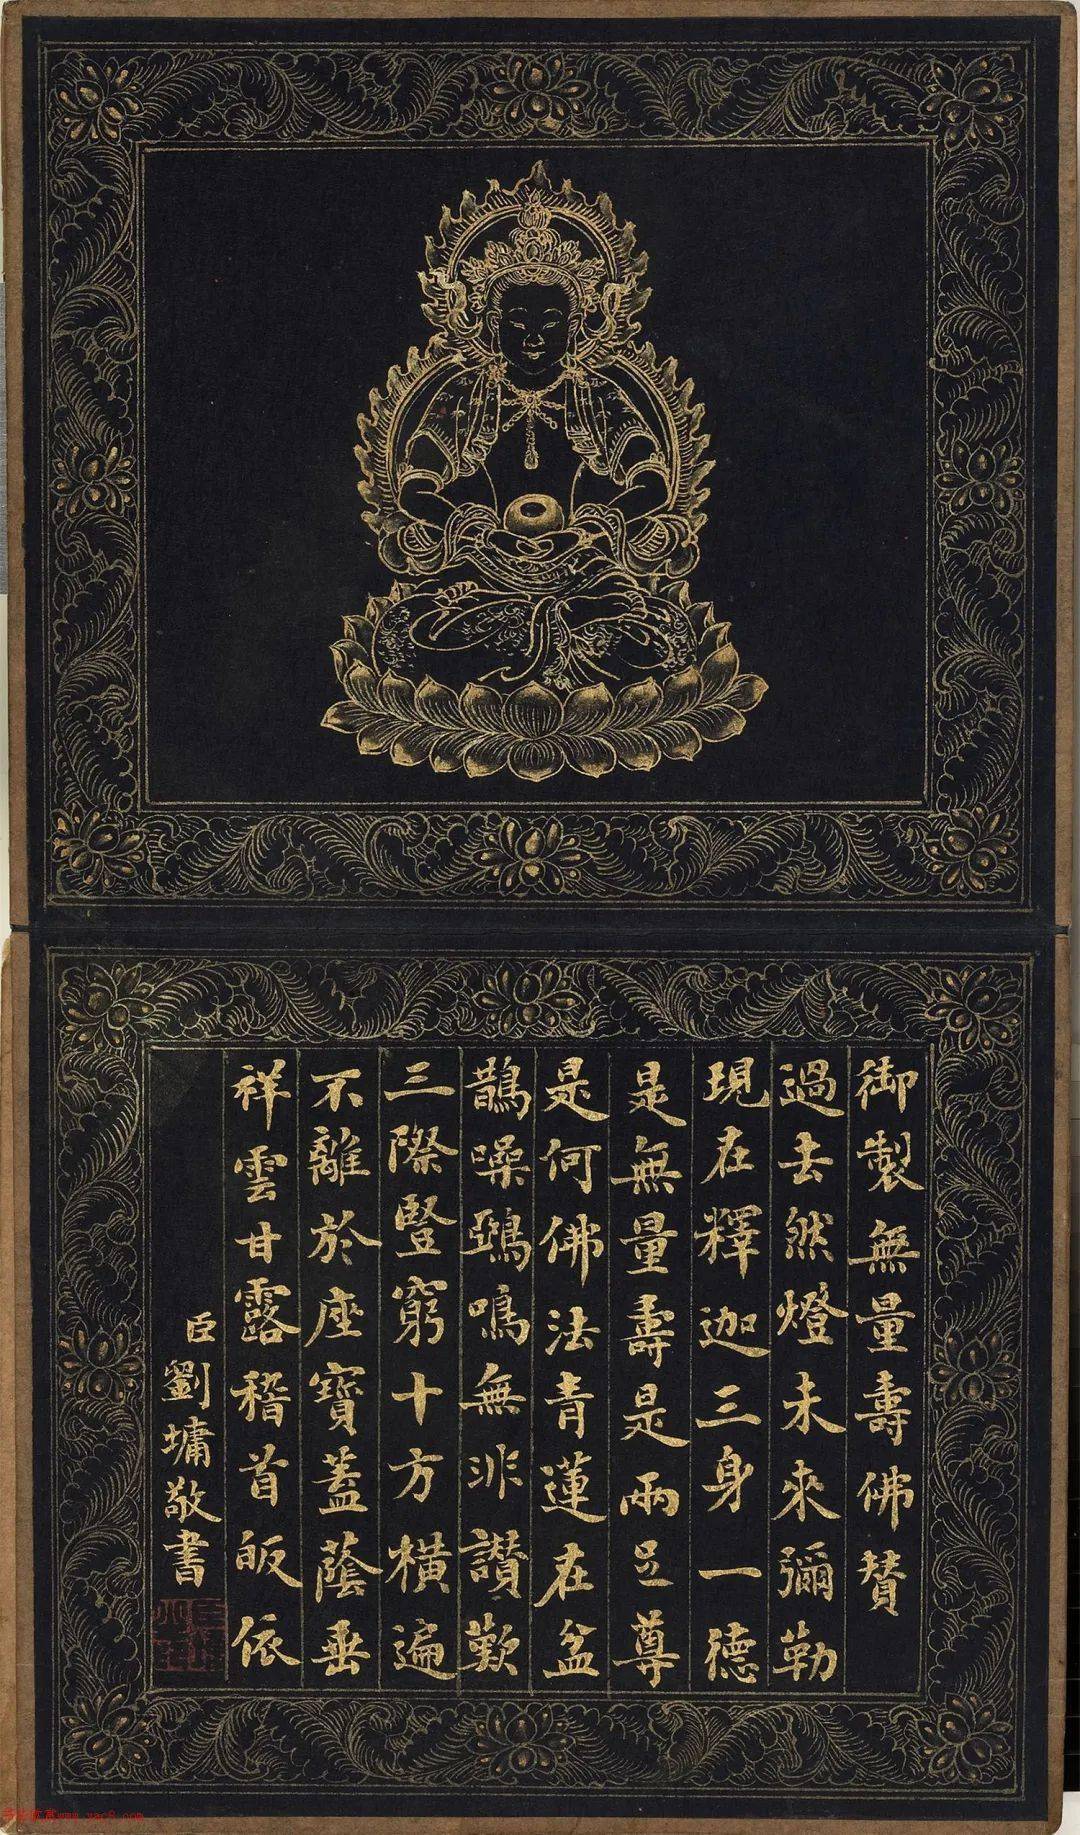 御製無量壽佛贊
過去然燈未來彌勒
現在釋迦三身一德
是無量壽是兩足尊
是何佛法青蓮在盆
鵲噪鵶鳴無非讚歎
三際豎窮十方橫遍
不離於座寶蓋蔭垂
祥雲甘露稽首皈依
臣劉墉敬書
www.yac8.com